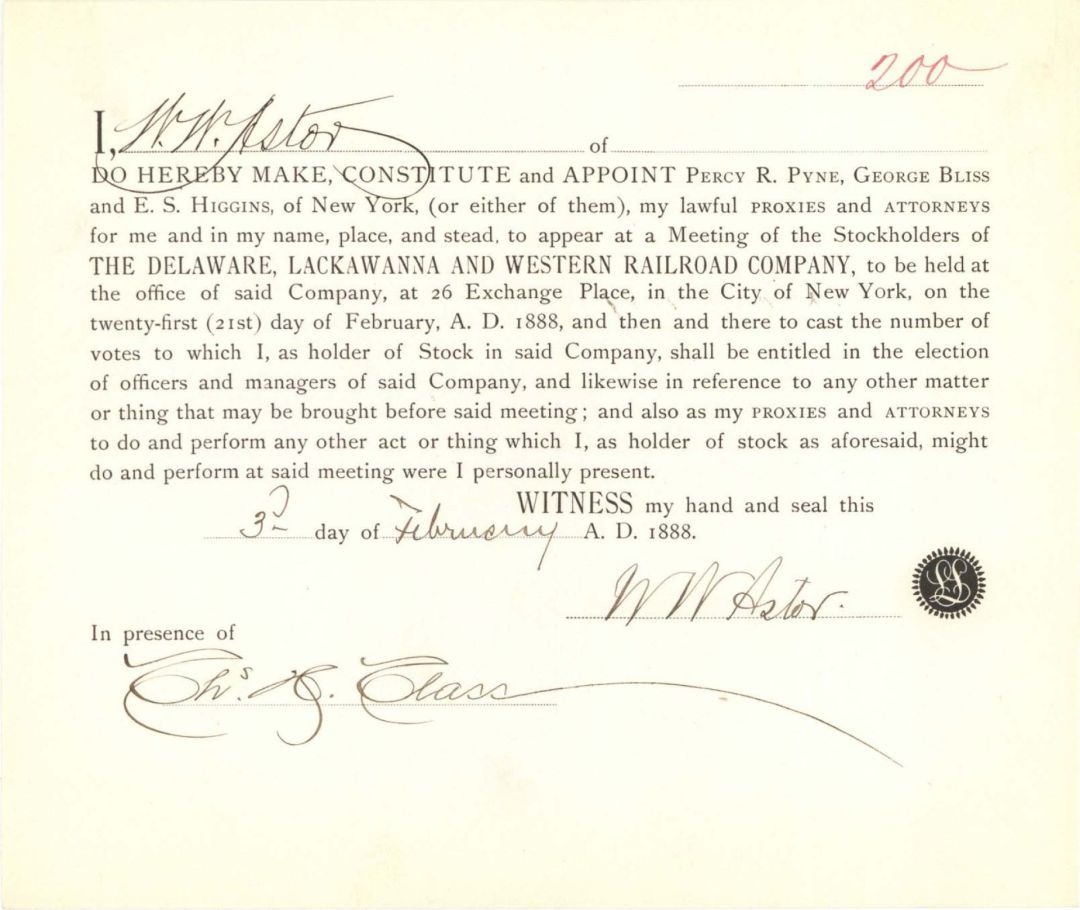 200
I, W. W. Astor of
DO HEREBY MAKE, CONSTITUTE and APPOINT PERCY R. PYNE, GEORGE BLISS
and E. S. HIGGINS, of New York, (or either of them), my lawful PROXIES and ATTORNEYS
for me and in my name, place, and stead, to appear at a Meeting of the Stockholders of
THE DELAWARE, LACKAWANNA AND WESTERN RAILROAD COMPANY, to be held at
the office of said Company, at 26 Exchange Place, in the City of New York, on the
twenty-first (21st) day of February, A. D. 1888, and then and there to cast the number of
votes to which I, as holder of Stock in said Company, shall be entitled in the election
of officers and managers of said Company, and likewise in reference to any other matter
or thing that may be brought before said meeting; and also as my PROXIES and ATTORNEYS
to do and perform any other act or thing which I, as holder of stock as aforesaid, might
do and perform at said meeting were I personally present.
WITNESS my hand and seal this
3d day of February A. D. 1888.
W W Astor.
LS
In presence of
Chs. H. Class